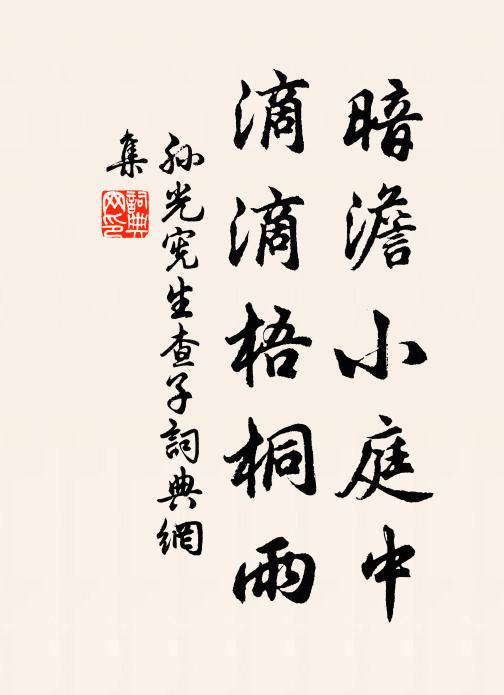 暗澹小庭中
滴滴梧桐雨
孙光宪生查子詞典網
集
詞典
网印